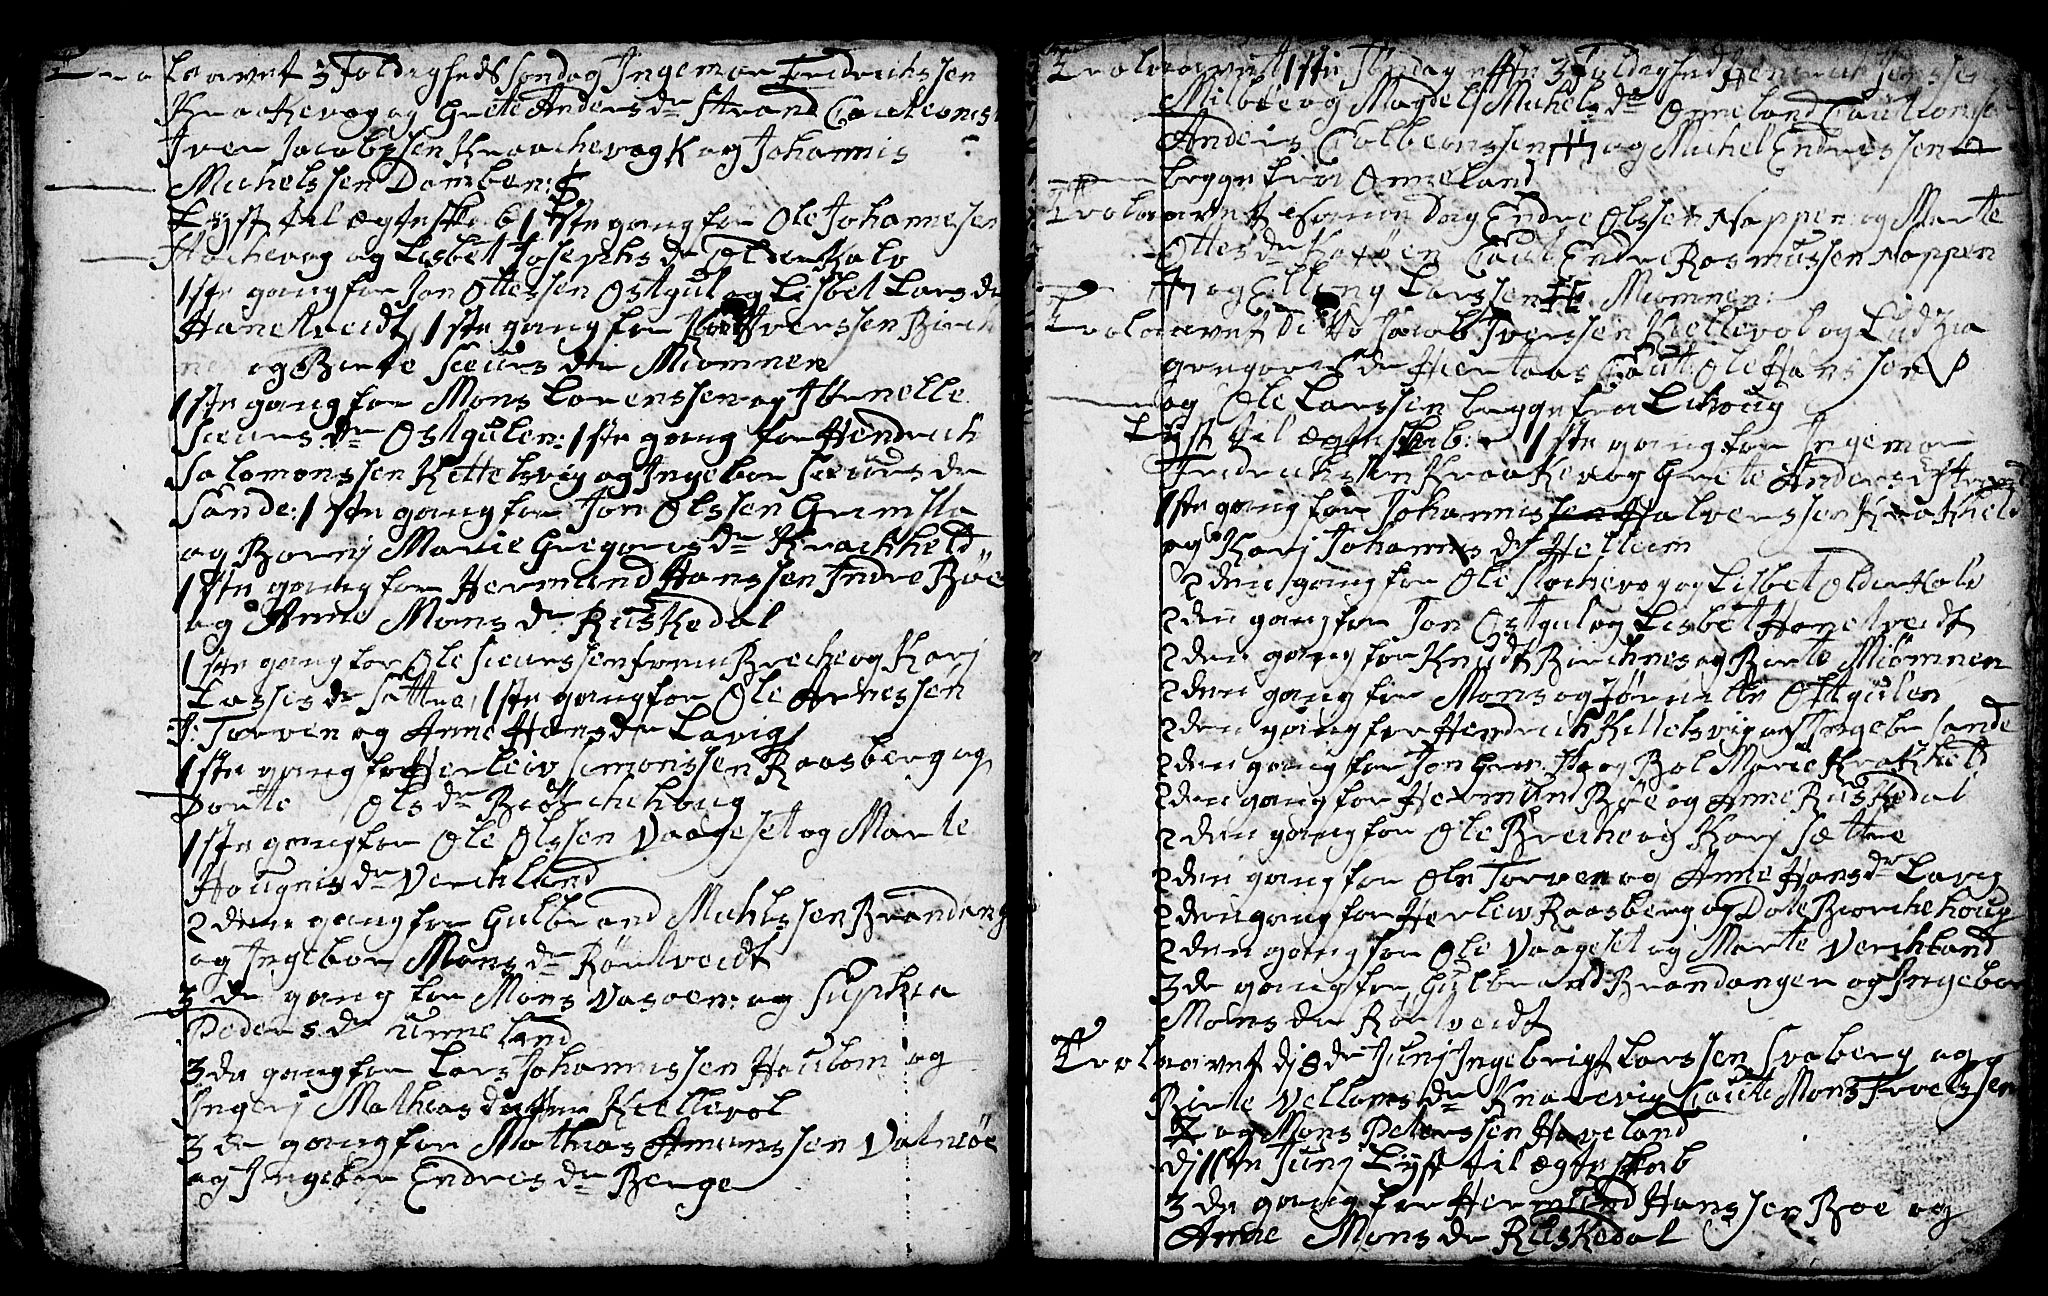 Trolaavet 3 Foldigheds søndag Ingemar Fredrichssen
Kraakevog og Grete Anders dr Strand Cauteonist
Iver Jacobssen Kraachevog K og Johannis
Michelssen Domben: S
Lyst til ægteskab 1ste gang for Ole Johannesen
Stochevog og Lisbet Josephs dr Older Kalv
1ste gang for Jon Ottessen Ostgul og Lisbet Lars dr
Hanekveidt, 1ste gang for Iverssen Birch
nes og Birte Siurs dr Miømnen
1ste gang for Mons Lorenssen og
Siurs dr Ostgulen: 1ste gang for Hendrich
Salomonssen Kettelsvig og Ingebor Siurs dr
Sande: 1ste gang for Jon Olssen Grimsta
og Marie Gregoris dr Kraakheld
1ste gang for Hermund Hanssen Indre Böe
og Anne Mons dr Ruskedal
1ste gang for Ole Siurssen Breche og Karj
Lasses dr Sættre, 1ste gang for Ole Arnessen
J: Torven og Anne Hans dr Lavig
1ste gang for Herleiv Simonssen Raasberg og
Dorte Ols dr Birchehoug
1ste gang for Ole Olssen Vaageset og Marte
Hougnis dr Verchland
2den gang for Gulbrand Michlssen Brandang
og Ingebor Mons dr Rörtveidt
3de gang for Mons Vasöen: og Suphia
Peders dr Unneland
3de gang for Lars Johannissen Houlom og
Ingerj Mathias datter Kiellevol
3de gang for Mathias Amunssen Valmöe
og Ingebor Endres dr Berge
Trolaavet 1ste Søndag efter 3 Foldighed Henrich Jenssen
Milbberg og Magdel Michels dr Onneland Cautionist
Anders Colbeonssen og Michel Endressen
begge fra Onneland
Trolaavet samme Dag Endre Olssen Nappen og Marte
Ottes dr Caut Endre Rasmussen Nappen
og Elling Larssen Miomnen:
Trolaavet Ditto Jacob Iverssen Kiellevol og Lydzia
Gregoris dr Hiertaas Caut: Ole Hanssen
og Ole Larssen begge fra Lihoug
Lyst til ægteskab: 1ste gang for Ingemar
Fredrichssen Kraakevog Grete Anders dr Strand
1ste gang for Johannis Halverssen Krakheld
og Karj Johannis dr Hellem
2den gang for Ole Stochevog og Lisbet Older Kalv
2den gang for Jon Ostgul og Lisbet Hanekveidt
2den gang for Knudt Birchnes og Birte Miömnen
2den gang for Mons og Jørnelle Ostgulen
2den gang for Hendrich Kettelsvig og Ingebr Sande
2den gang for Jon og Bol Marie Krakheld
2den gang for Hermund Böe og Anne Ruskedal
2den gang for Ole Breche og Karj Sættre
2den gang for Ole Torven og Anne Hans dr Lavig
2den gang for Herleiv Raasberg og Dote Birchehoug
2den gang for Ole Vaageset og Marte Verchland
3de gang for Gulbrand Brandanger og Ingebor
Mons dr Rörtveidt
Trolaavet dj 8de Junj Ingebrigt Larssen Svaberg og
Birte Velloms dr Knarevig Caute Mons Troelssen
og Mons Peterssen Haveland
dj 11te Junj Lyst til ægteskab
3de gang for Hermund Hanssen Böe og
Anne Mons dr Ruskedal